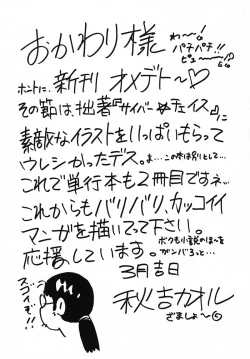 おかわり様
わ〜!
パチパチ!!
ピュ〜〜!?
ホントに、新刊 オメデト〜♡
その節は、拙著『サイバー☆チェイス』に
素敵なイラストをいっぱいもらって
ウレシかったデス。
これで単行本も2冊目ですネ。
これからもバリバリ、カッコイイ
マンガを描いて下さい。
応援しています。
ガンバろっと…
3月吉日
秋吉カオル
ざましょ〜
スゴイぞ!!